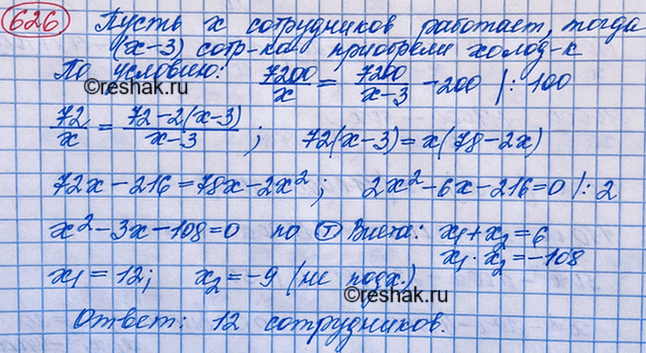 626 Пусть x сотрудников работает, тогда
(x-3) сотр-ка приобрели холод-к
По условию: 7200/x = 7200/(x-3) - 200 |: 100
©reshak.ru
72/x = (72-2(x-3))/(x-3) ; 72(x-3) = x(78-2x)
72x-216=78x-2x² ; 2x²-6x-216=0 |: 2
x²-3x-108=0 по Ⓣ Виета: x₁+x₂=6
x₁·x₂=-108
x₁=12; x₂=-9 (не подх.)
©reshak.ru
Ответ: 12 сотрудников.